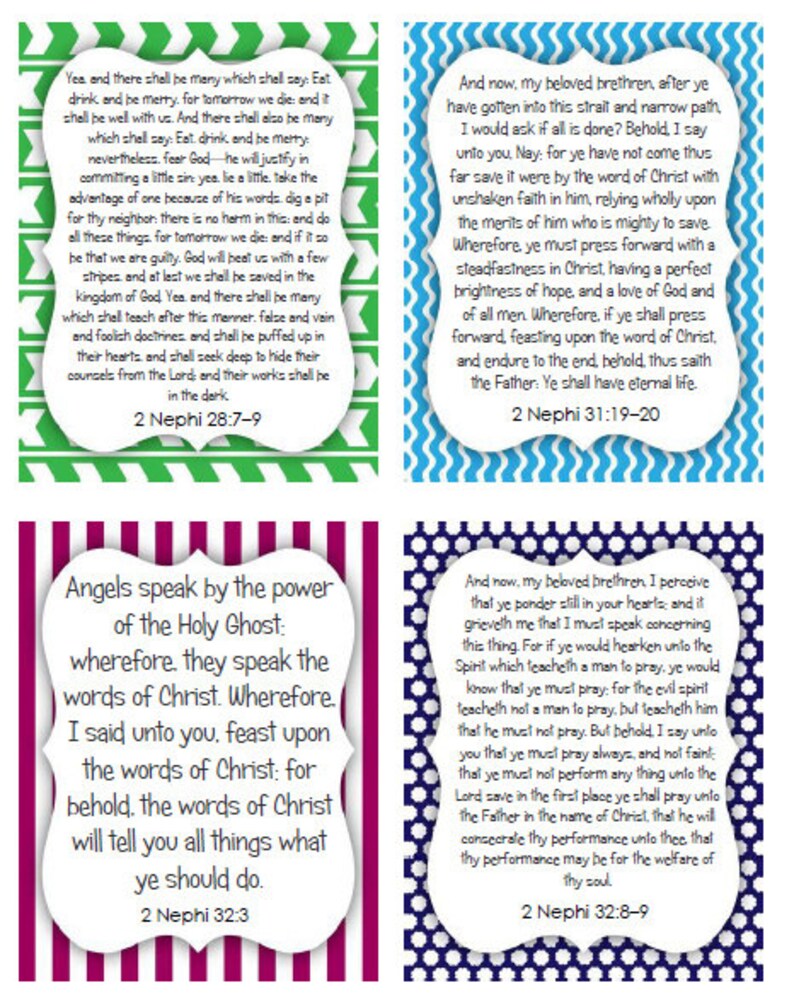 Yea, and there shall be many which shall say: Eat,
drink, and be merry, for tomorrow we die; and it
shall be well with us. And there shall also be many
which shall say: Eat, drink, and be merry;
nevertheless, fear God—he will justify in
committing a little sin; yea, lie a little, take the
advantage of one because of his words, dig a pit
for thy neighbor; there is no harm in this; and do
all these things, for tomorrow we die; and if it so
be that we are guilty, God will beat us with a few
stripes, and at last we shall be saved in the
kingdom of God. Yea, and there shall be many
which shall teach after this manner, false and vain
and foolish doctrines, and shall be puffed up in
their hearts, and shall seek deep to hide their
counsels from the Lord; and their works shall be
in the dark.
2 Nephi 28:7–9
And now, my beloved brethren, after ye
have gotten into this strait and narrow path,
I would ask if all is done? Behold, I say
unto you, Nay; for ye have not come thus
far save it were by the word of Christ with
unshaken faith in him, relying wholly upon
the merits of him who is mighty to save.
Wherefore, ye must press forward with a
steadfastness in Christ, having a perfect
brightness of hope, and a love of God and
of all men. Wherefore, if ye shall press
forward, feasting upon the word of Christ,
and endure to the end, behold, thus saith
the Father: Ye shall have eternal life.
2 Nephi 31:19–20
Angels speak by the power
of the Holy Ghost;
wherefore, they speak the
words of Christ. Wherefore,
I said unto you, feast upon
the words of Christ; for
behold, the words of Christ
will tell you all things what
ye should do.
2 Nephi 32:3
And now, my beloved brethren, I perceive
that ye ponder still in your hearts; and it
grieveth me that I must speak concerning
this thing. For if ye would hearken unto the
Spirit which teacheth a man to pray, ye would
know that ye must pray; for the evil spirit
teacheth not a man to pray, but teacheth him
that he must not pray. But behold, I say unto
you that ye must pray always, and not faint;
that ye must not perform any thing unto the
Lord save in the first place ye shall pray unto
the Father in the name of Christ, that he will
consecrate thy performance unto thee, that
thy performance may be for the welfare of
thy soul.
2 Nephi 32:8–9